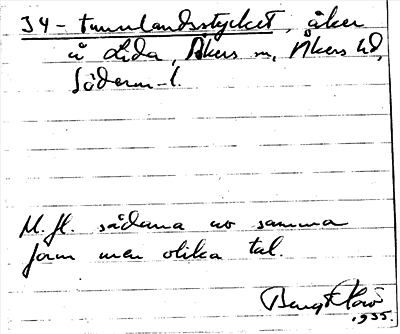 34-tunnlandsstycket, åker
å Lida, Åkers sn, Åkers hd,
Söderm. l.
M. fl. sådana av samma
form men olika tal.
Bengt
1935.